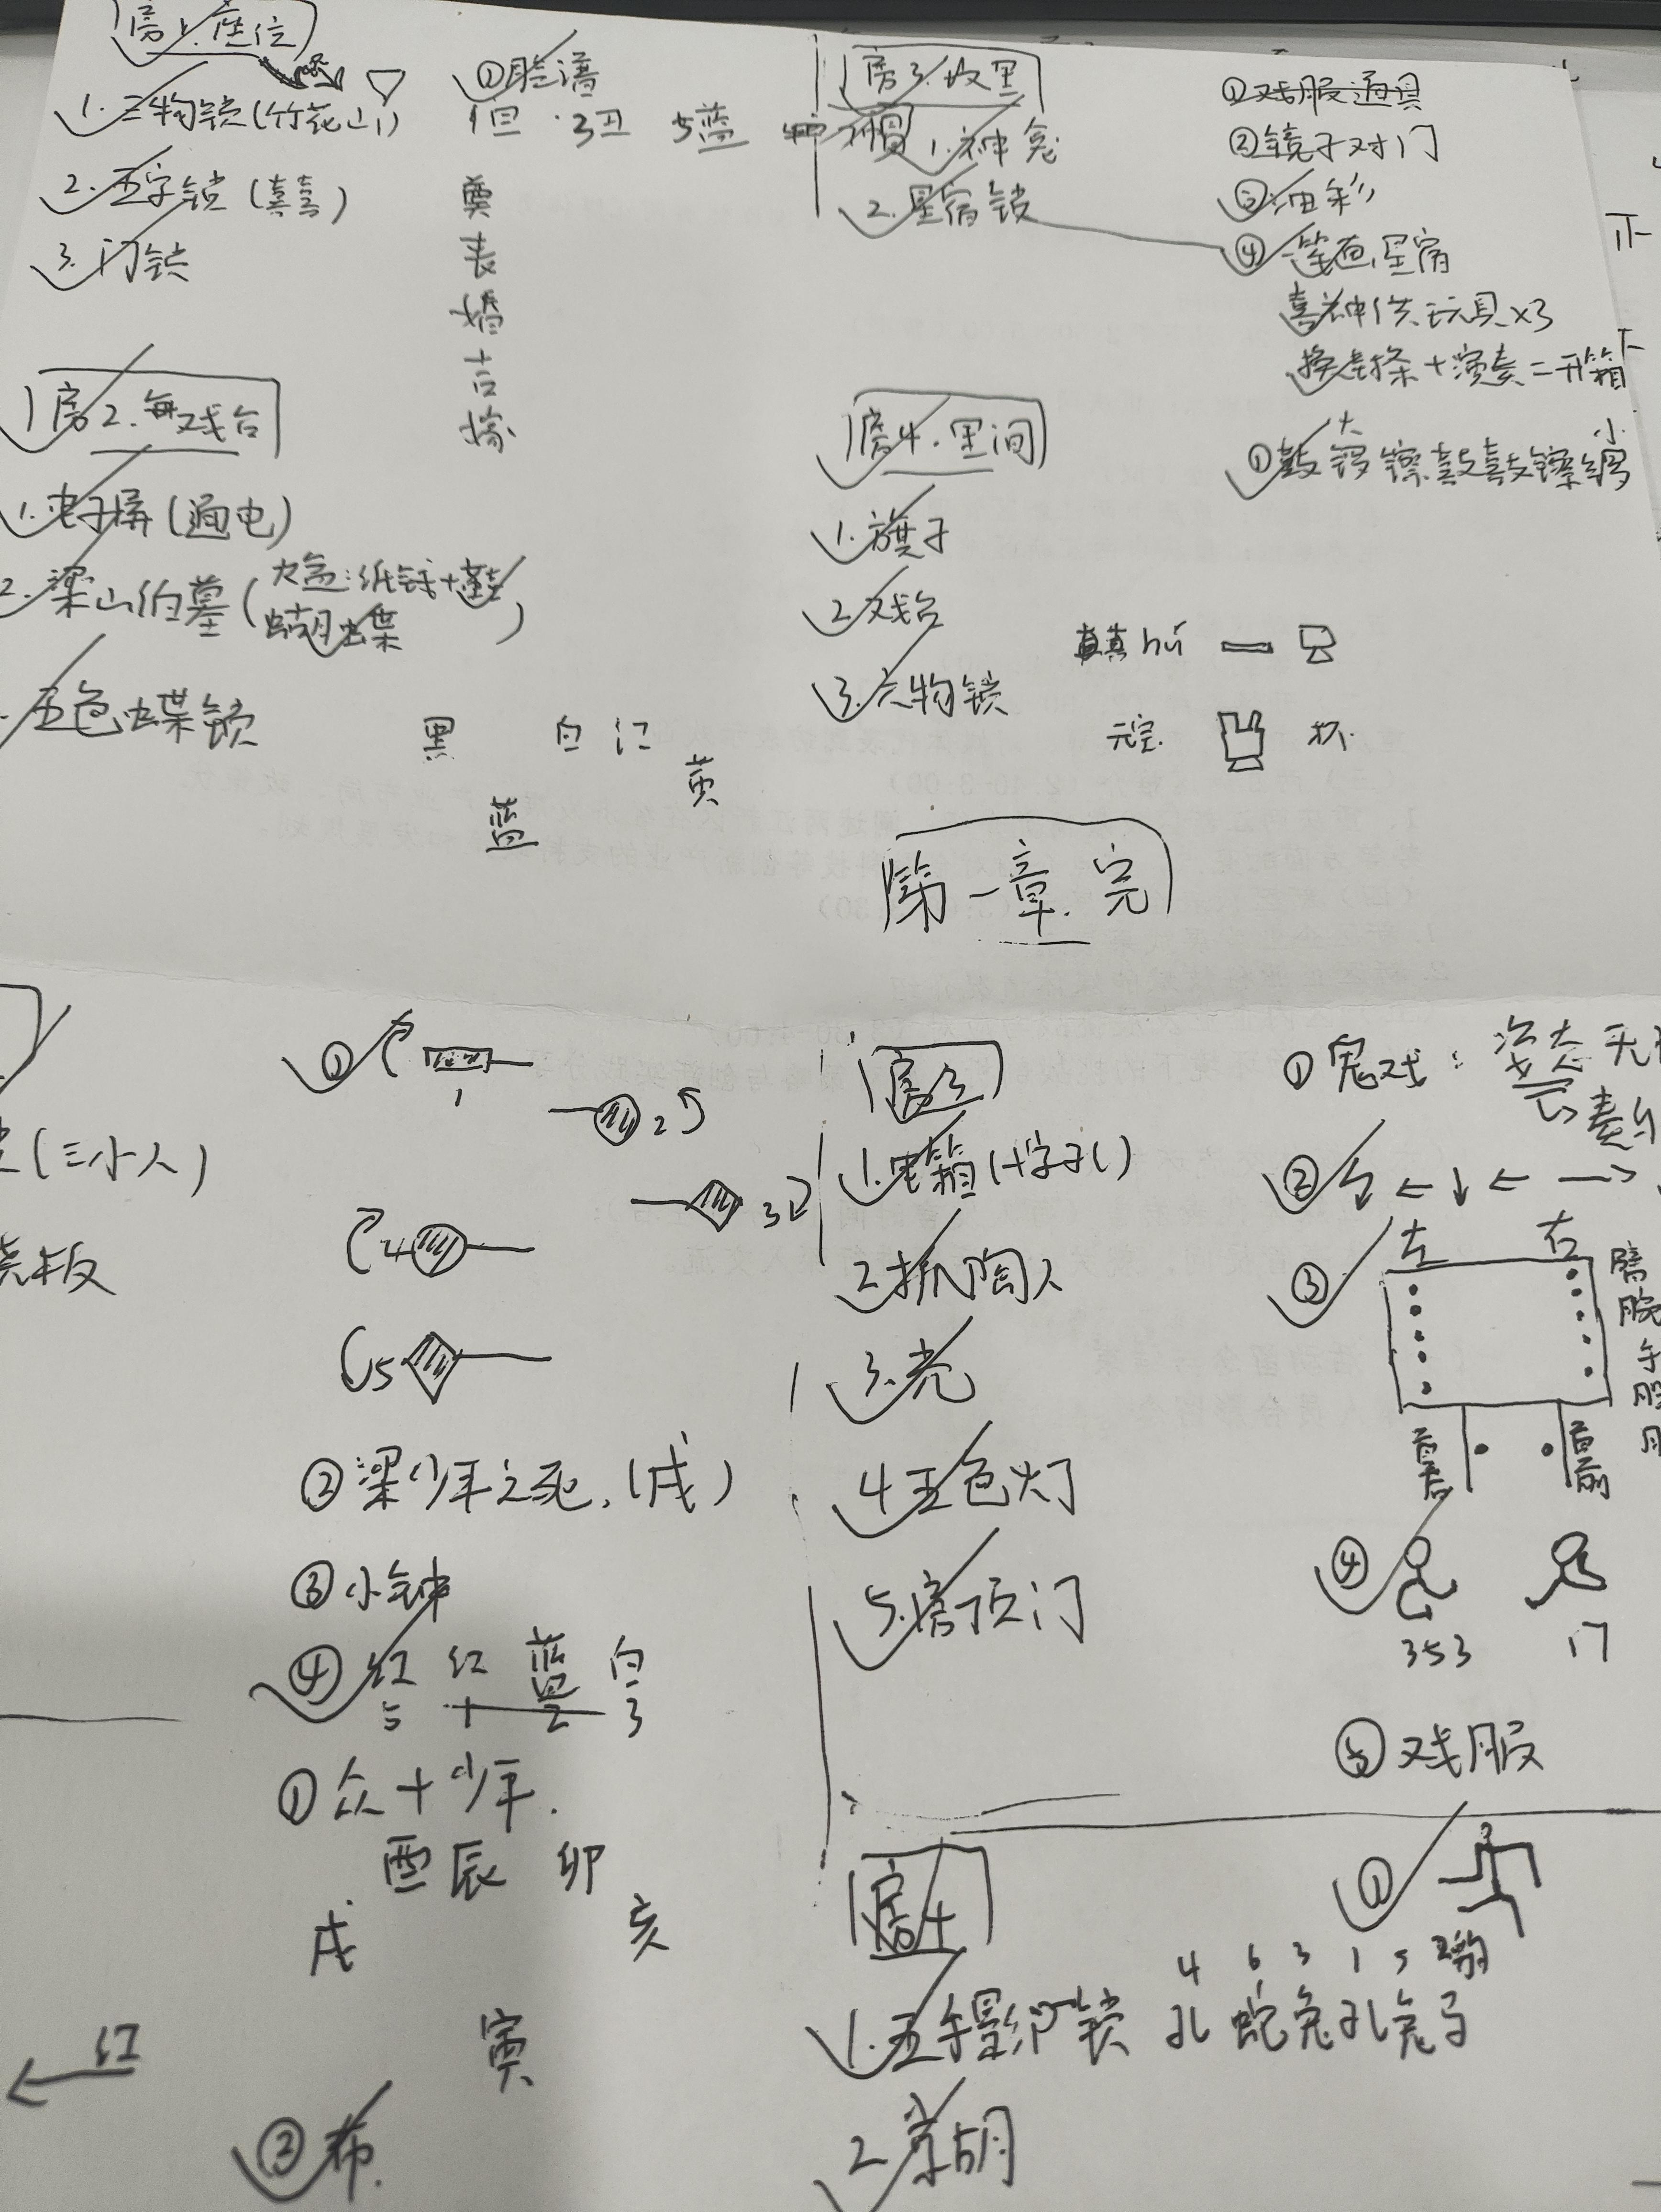 房1.座位
1.三物锁(竹花山)
2.五字锁(喜喜)
3.门锁
①脸谱
1旦 3丑 5蓝
奠
丧
婚
吉
嫁
房2.每戏台
1.电子屏(通电)
2.梁山伯墓(火盆:纸钱+囍
蝴蝶)
五色蝶锁
黑 白 红
黄
蓝
房3.坟里
1.神龛
2.星宿锁
①戏服道具
②镜子对门
③油彩
④笔画,星宿
喜神供玩具×3
换封条+演奏=开箱
①鼓 锣 镲鼓鼓镲锣
大
小
房4.里间
1.旗子
2.戏台
3.六物锁
元宝 杯
第一章.完
(三小人)
①
1
2
3
4
5
②梁少年之死.(戌)
③小钟
④红 红 蓝 白
5 1 2 3
①众+少年.
酉 辰 卯
戌 亥
寅
红
②布.
房3
1.电箱(十字孔)
2.抓陶人
3.壳
4.五色灯
5.房顶门
①鬼戏:
②← ↓ ← →
③左 右
④
353 17
⑤戏服
房4
①
4 6 3 1 5 2
1.五手影门锁 孔 蛇 兔 孔 兔 马
2.京胡